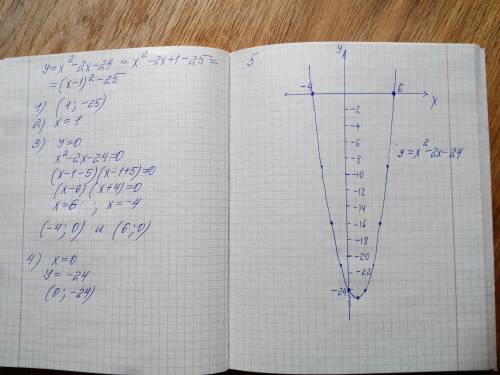 y=x²-2x-24 = x²-2x+1-25=
=(x-1)²-25
1) (1; -25)
2) x=1
3) y=0
x²-2x-24=0
(x-1-5)(x-1+5)=0
(x-6)(x+4)=0
x=6 ; x=-4
(-4; 0) и (6; 0)
4) x=0
y= -24
(0; -24)
5
y
-4
6
x
-2
-4
-6
-8
-10
-12
-14
-16
-18
-20
-22
-24
y=x²-2x-24